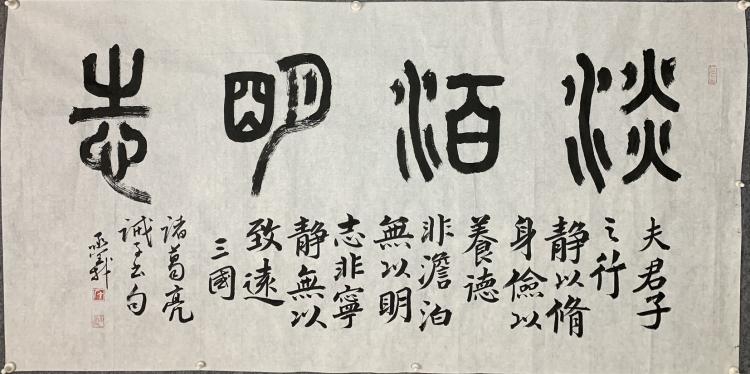 淡泊明志
夫君子
之行
静以脩
身儉以
養德
非澹泊
無以明
志非寧
静無以
致遠
三國
諸葛亮
誡子书句